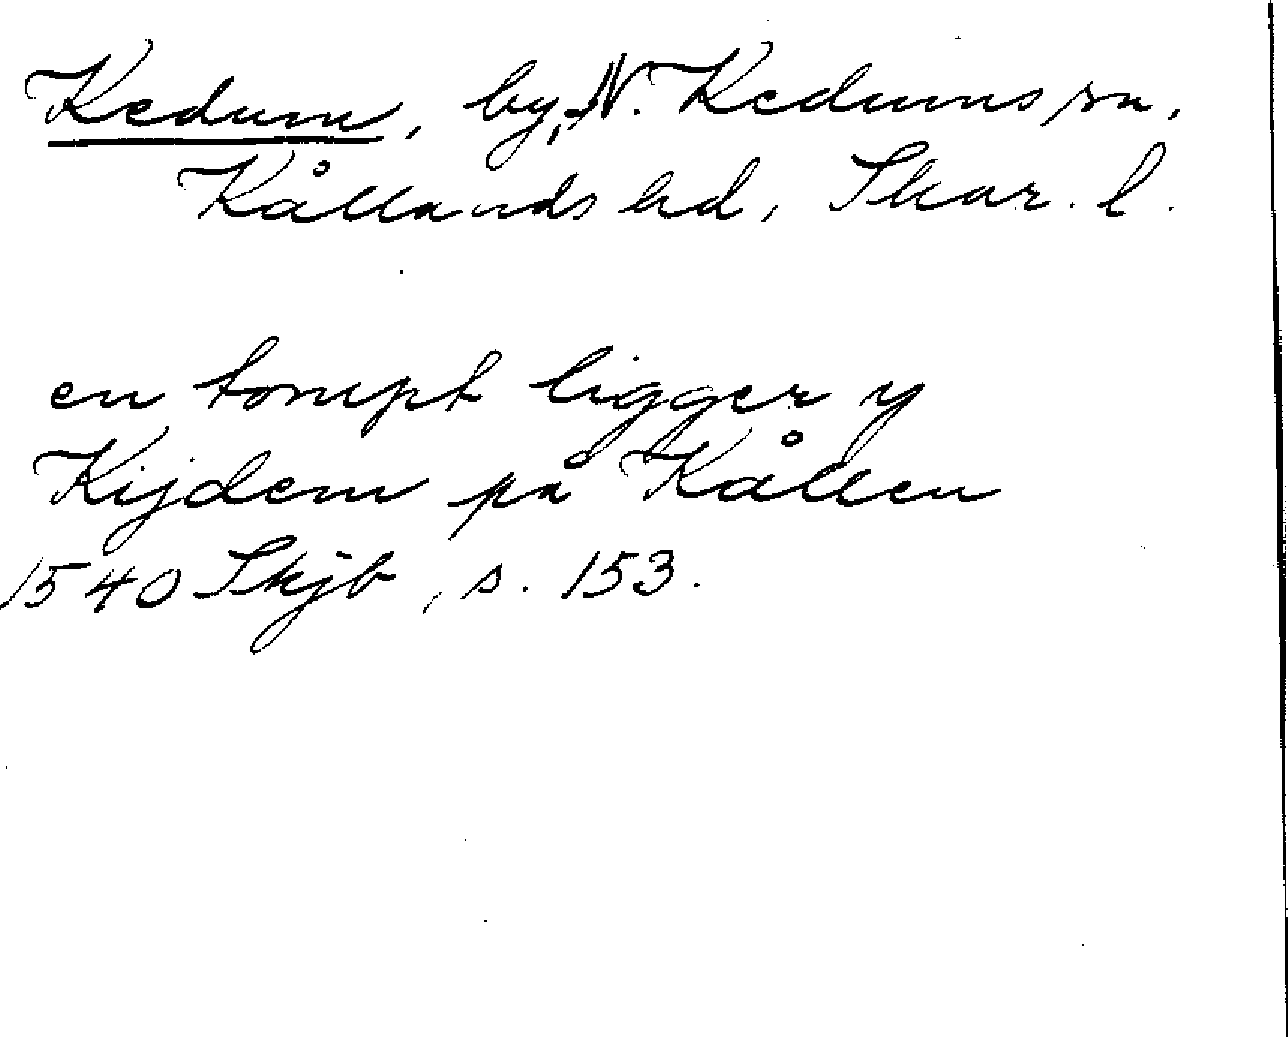 Kedum, by, N. Kedums sn,
Kållands hd, Skar. l.
en tompt ligger y
Kijdem på Kållen
1540 Skjb, s. 153.